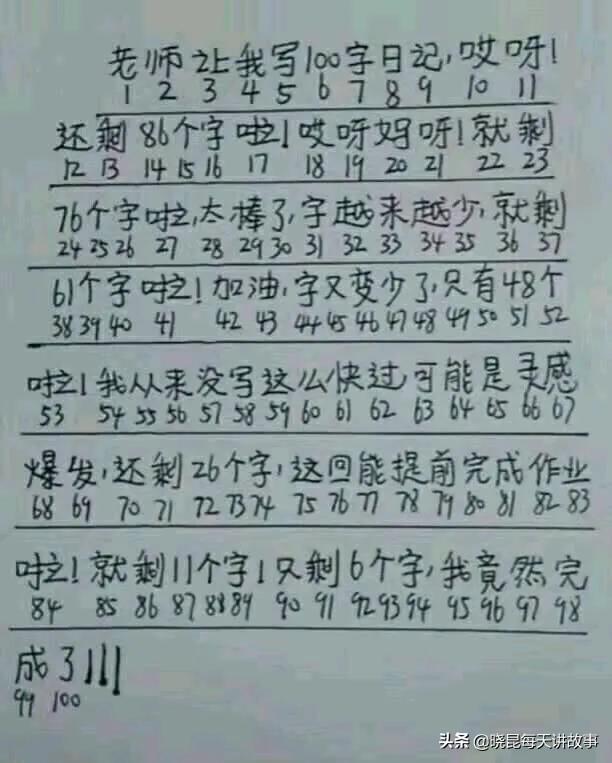 老师让我写100字日记,哎呀!
1 2 3 4 5 6 7 8 9 10 11
还剩86个字啦!哎呀妈呀!就剩
12 13 14 15 16 17 18 19 20 21 22 23
76个字啦,太棒了,字越来越少,就剩
24 25 26 27 28 29 30 31 32 33 34 35 36 37
61个字啦!加油,字又变少了,只有48个
38 39 40 41 42 43 44 45 46 47 48 49 50 51 52
啦!我从来没写这么快过,可能是灵感
53 54 55 56 57 58 59 60 61 62 63 64 65 66 67
爆发,还剩26个字,这回能提前完成作业
68 69 70 71 72 73 74 75 76 77 78 79 80 81 82 83
啦!就剩11个字!只剩6个字,我竟然完
84 85 86 87 88 89 90 91 92 93 94 95 96 97 98
成了!!!
99 100
头条 @晓昆每天讲故事